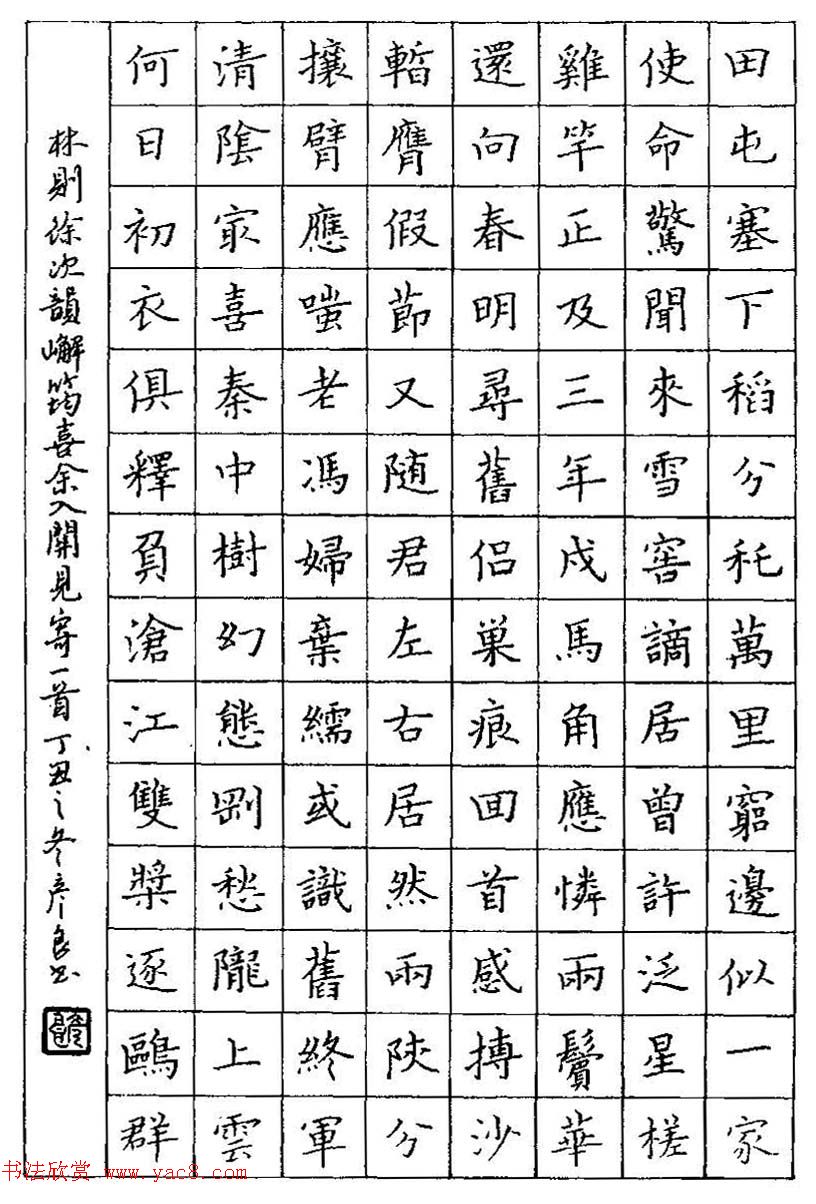 田屯塞下稻分秅萬里窮邊似一家
使命驚聞來雪窖謫居曾許泛星槎
雞竿正及三年戍馬角應憐兩鬢華
還向春明尋舊侣巢痕回首感摶沙
暫膺假節又随君左右居然兩陝分
攘臂應嗤老馮婦棄繻或識舊終軍
清陰冣喜秦中樹幻態剛愁隴上雲
何日初衣俱釋負滄江雙槳逐鷗群
林則徐次韻嶰筠喜余入關見寄一首丁丑之冬彦良书
书法欣赏 www.yac8.com